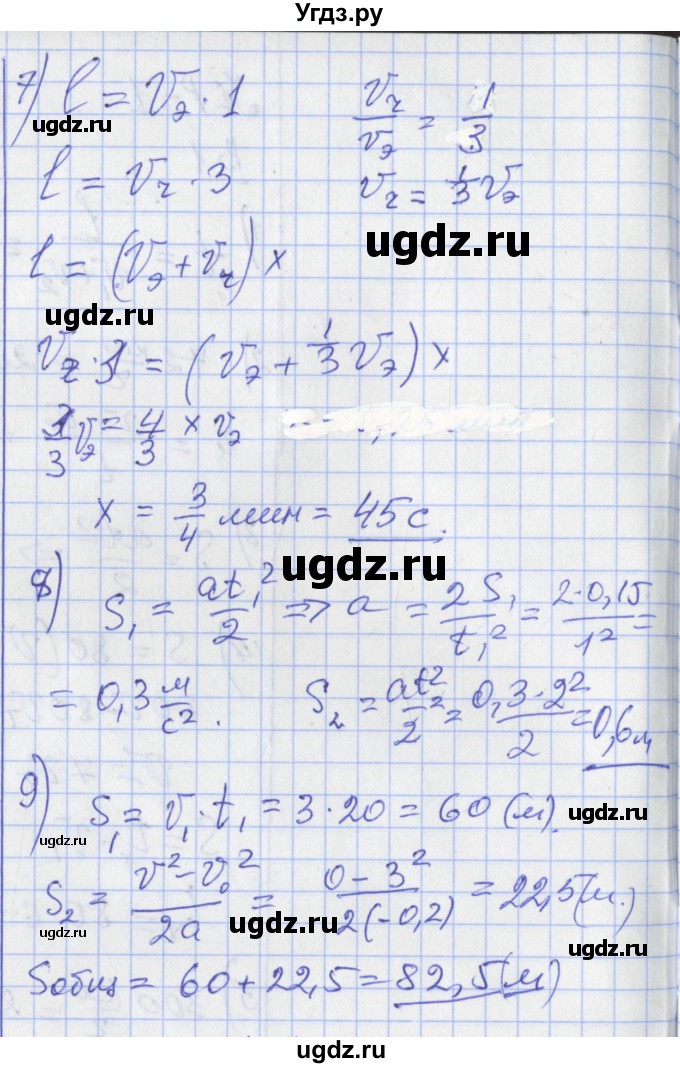 Угдз.ру
7) l = Vэ · 1    Vч/Vэ = 1/3
ugdz.ru
l = Vч · 3    Vч = 1/3 Vэ
ugdz.ru
l = (Vэ + Vч) x
ugdz.ru
Vч · 3 = (Vэ + 1/3 Vэ) x
3/3 Vэ = 4/3 x Vэ
x = 3/4 мин = 45 с.
ugdz.ru
8) S₁ = at₁²/2 => a = 2S₁/t₁² = 2·0,15/1² =
= 0,3 м/с².    S₂ = at₂²/2 = 0,3·2²/2 = 0,6 м
ugdz.ru ugdz.ru
9) S₁ = V₁ · t₁ = 3 · 20 = 60 (м).
ugdz.ru
S₂ = (V² – V₀²)/2a = (0 – 3²)/2(–0,2) = 22,5 (м.)
ugdz.ru ugdz.ru ugdz.ru
Sобщ = 60 + 22,5 = 82,5 (м)
ugdz.ru